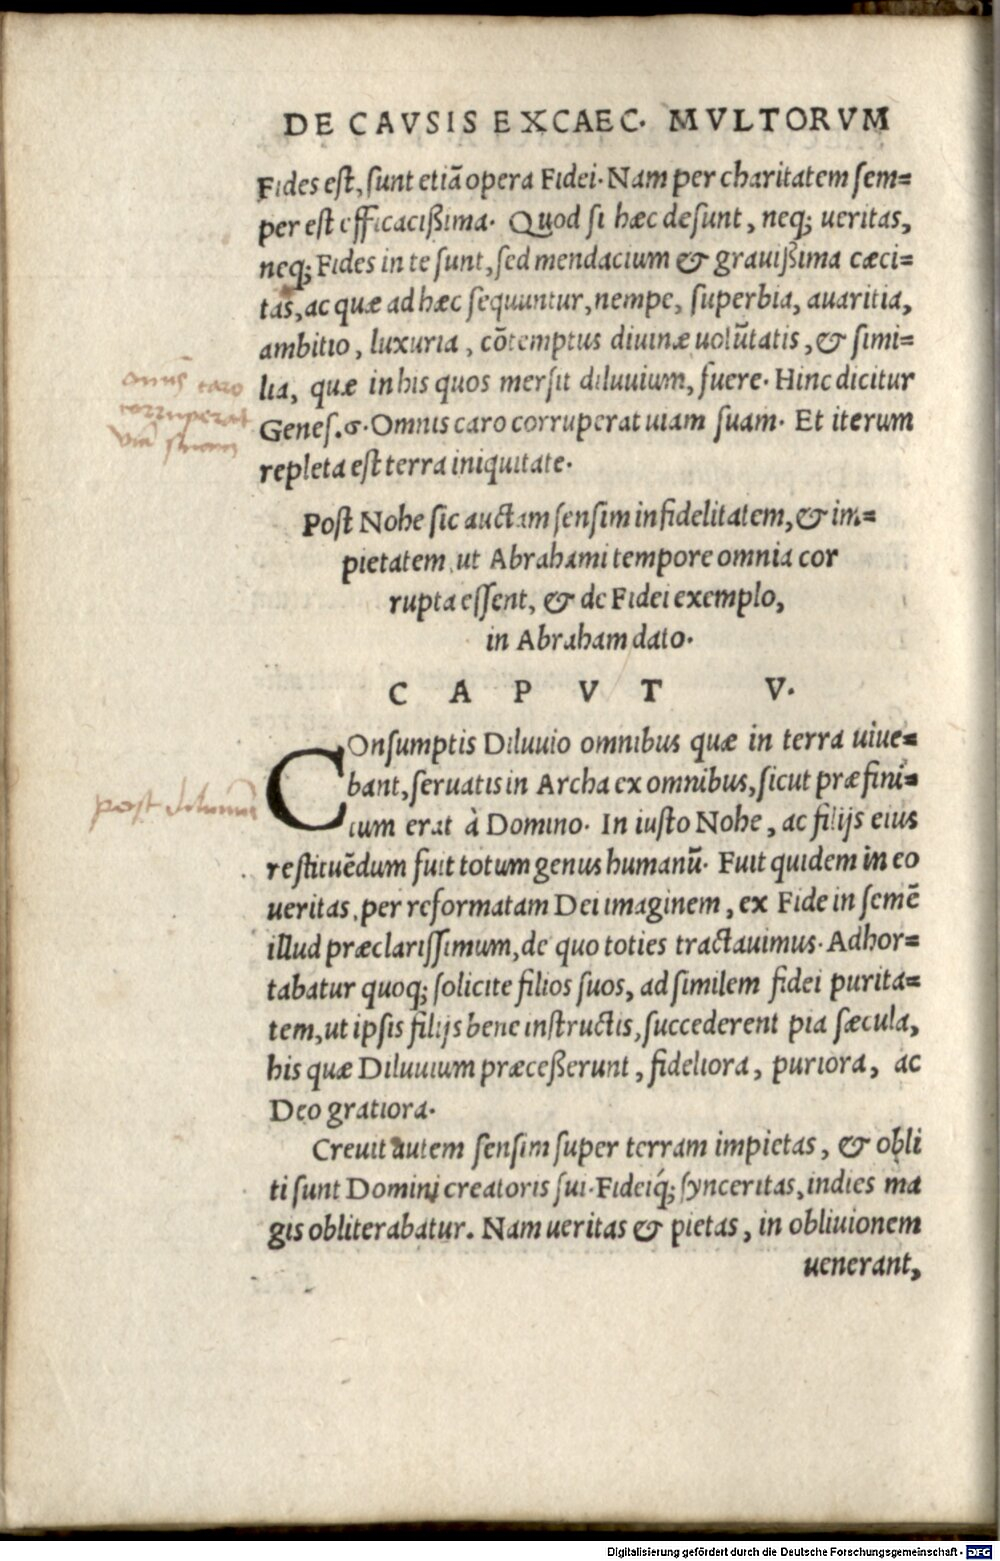 DE CAVSIS EXCAEC. MVLTORVM
Fides est, sunt etiā opera Fidei. Nam per charitatem sem=
per est efficacißima. Quod si hæc desunt, neq; ueritas,
neq; Fides in te sunt, sed mendacium & grauißima cæci=
tas, ac quæ ad hæc sequuntur, nempe, superbia, auaritia,
ambitio, luxuria, cōtemptus diuinæ uolūtatis, & simi=
lia, quæ in his quos mersit diluuium, fuere. Hinc dicitur
Genes. 6. Omnis caro corruperat uiam suam. Et iterum
repleta est terra iniquitate.
omīs caro
corruperat
viā suam
Post Nohe sic auctam sensim infidelitatem, & im=
pietatem, ut Abrahami tempore omnia cor
rupta essent, & de Fidei exemplo,
in Abraham dato.
CAPVT V.
COnsumptis Diluuio omnibus quæ in terra uiue=
bant, seruatis in Archa ex omnibus, sicut præfini=
tum erat à Domino. In iusto Nohe, ac filijs eius
restituēdum fuit totum genus humanū. Fuit quidem in eo
ueritas, per reformatam Dei imaginem, ex Fide in semē
illud præclarissimum, de quo toties tractauimus. Adhor=
tabatur quoq; solicite filios suos, ad similem fidei purita=
tem, ut ipsis filijs bene instructis, succederent pia sæcula,
his quæ Diluuium præceßerunt, fideliora, puriora, ac
Deo gratiora.
post diluuiū
Creuit autem sensim super terram impietas, & obli
ti sunt Domini creatoris sui. Fideiq́; synceritas, indies ma
gis obliterabatur. Nam ueritas & pietas, in obliuionem
uenerant,
Digitalisierung gefördert durch die Deutsche Forschungsgemeinschaft - DFG